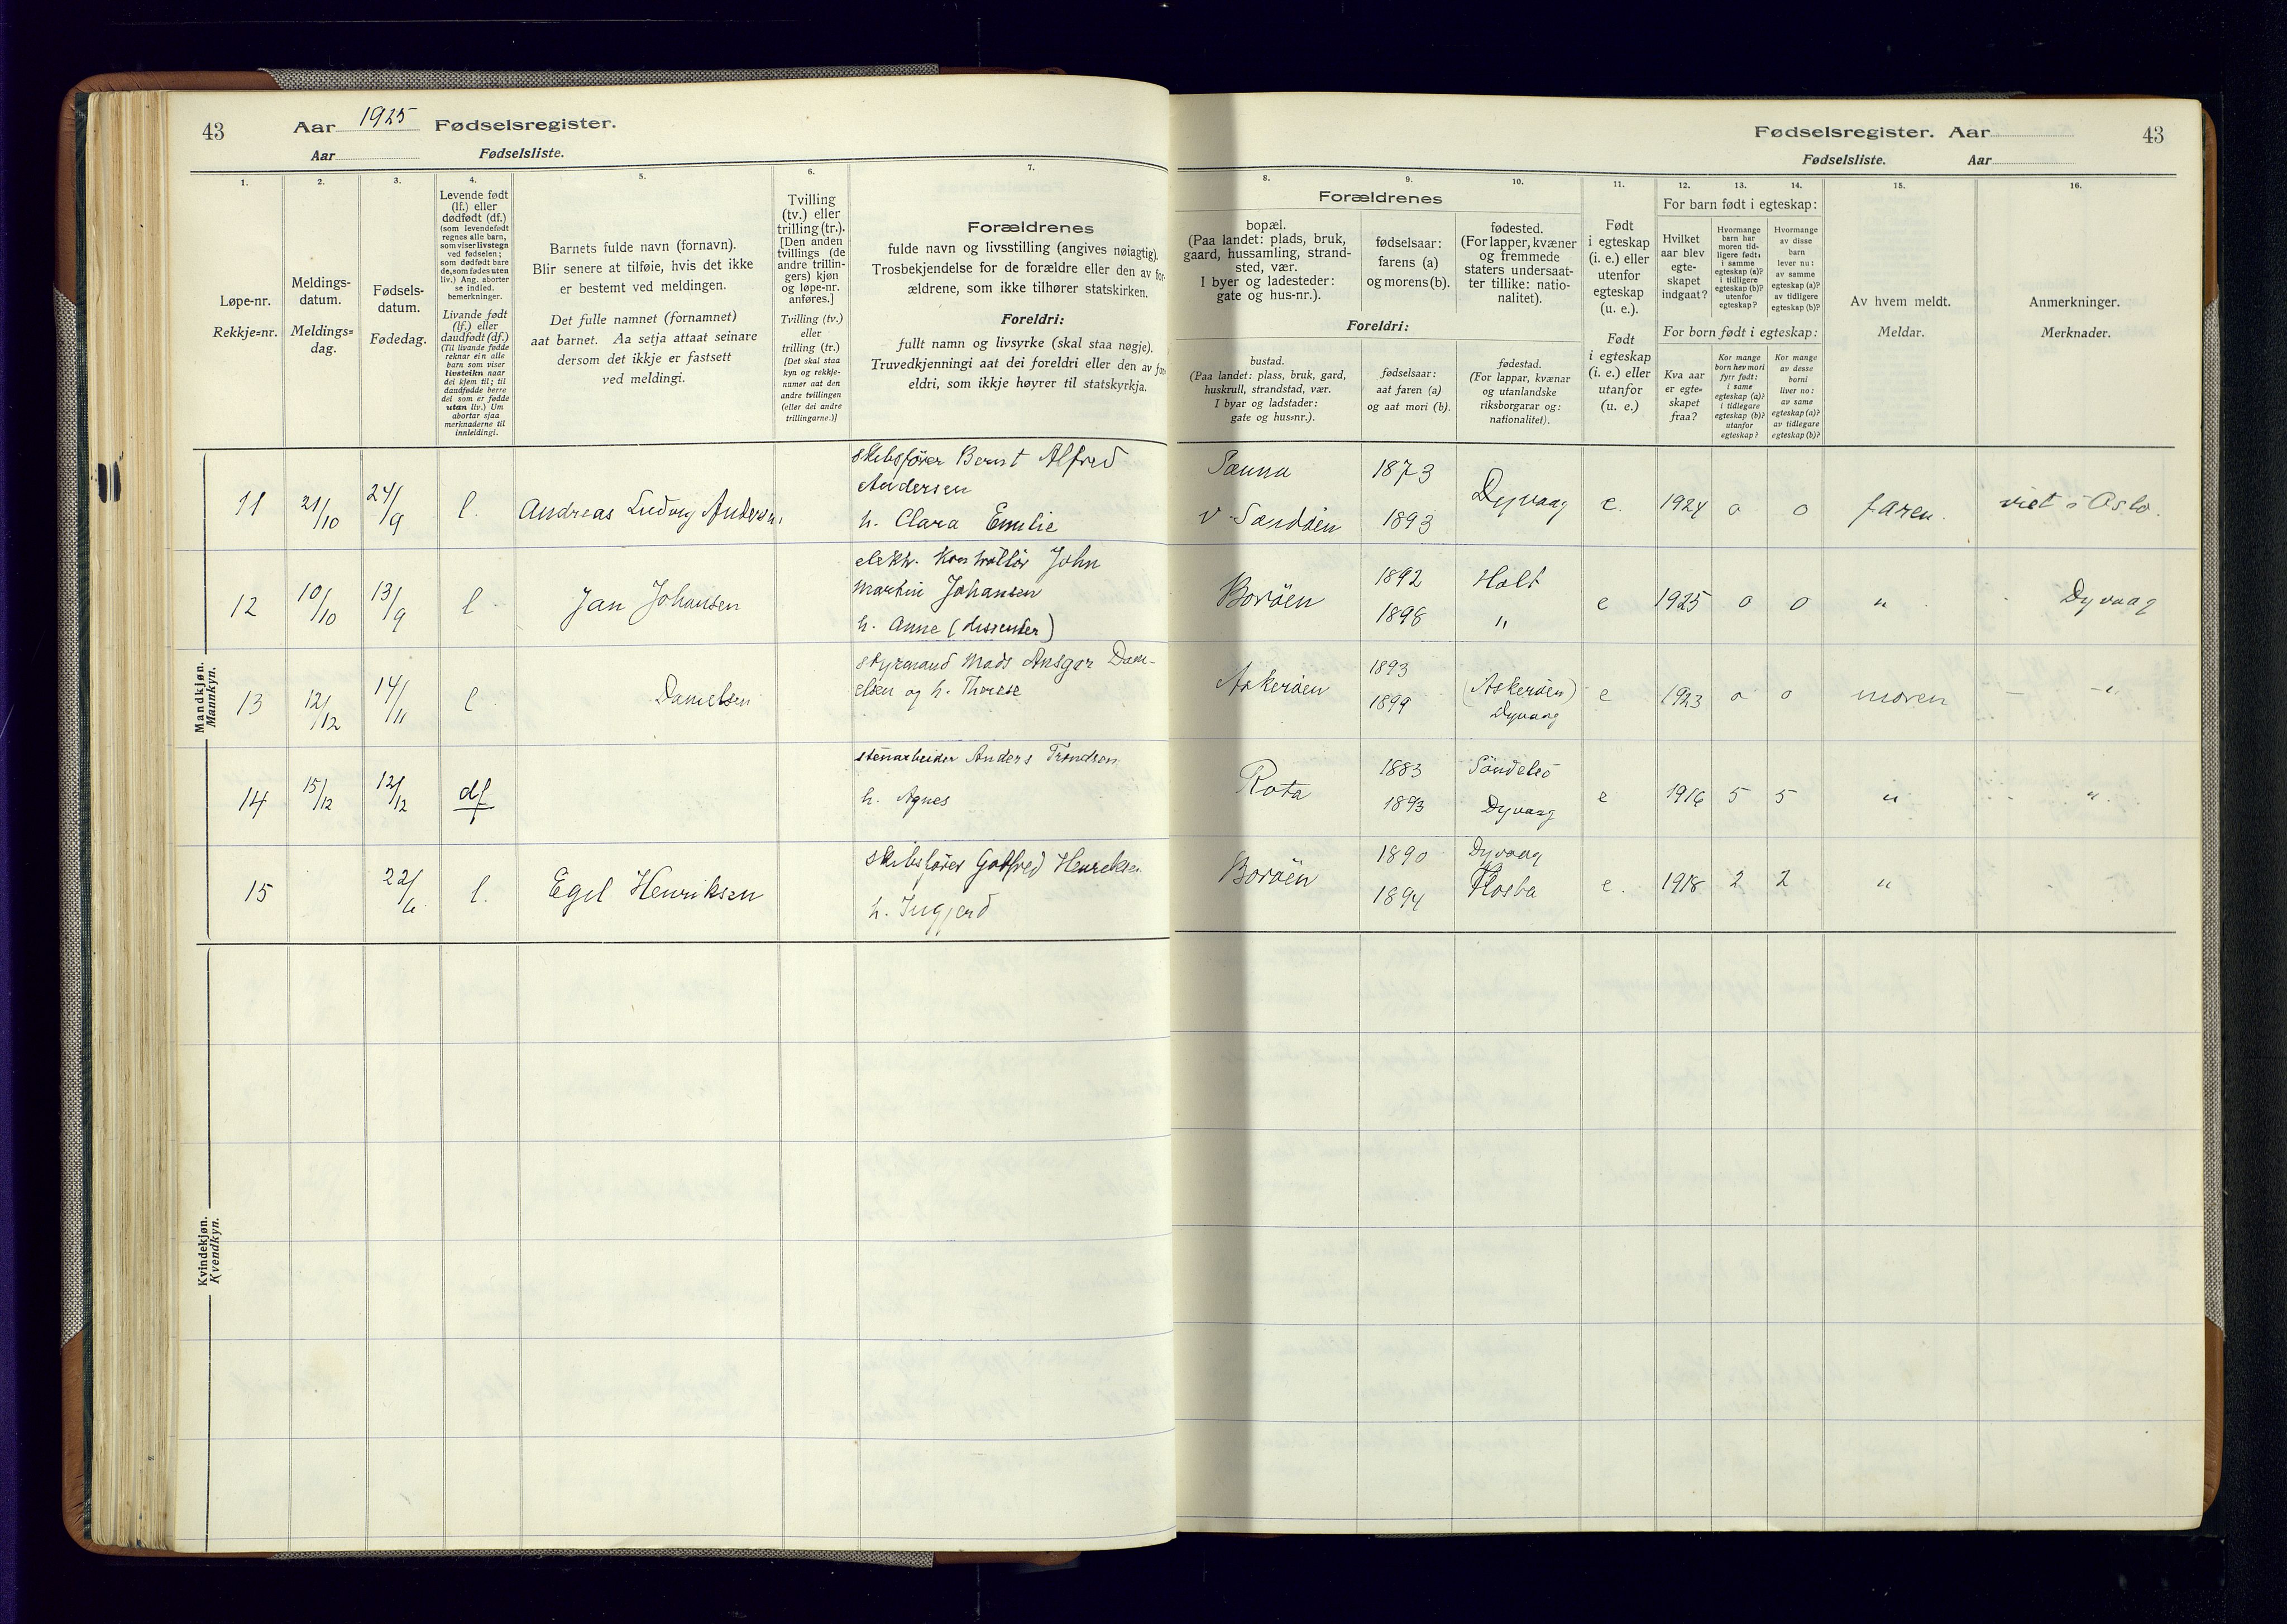 43
Aar 1925 Fødselsregister.
Aar Fødselsliste.
Fødselsregister. Aar
43
Fødselsliste. Aar
1.
Løpe-nr.
Rekkje=nr.
2.
Meldings-
datum.
Meldings=
dag.
3.
Fødsels-
datum.
Fødedag.
4.
Levende født
(lf.) eller
dødfødt (df.)
(som levendefødt
regnes alle barn,
som viser livstegn
ved fødselen;
som dødfødt bare
de, som fødes uten
liv.) Ang. aborter
se indled.
bemerkninger.
Livande født
(lf.) eller
daudfødt (df.)
(Til livande fødde
reknar ein alle
barn som viser
livsteikn naar
dei kjem til; til
daudfødde berre
dei som er fødde
utan liv.) Um
abortar sjaa
merknaderne til
innleidingi.
5.
Barnets fulde navn (fornavn).
Blir senere at tilføie, hvis det ikke
er bestemt ved meldingen.
Det fulle namnet (fornamnet)
aat barnet. Aa setja attaat seinare
dersom det ikkje er fastsett
ved meldingi.
6.
Tvilling
(tv.) eller
trilling (tr.).
[Den anden
tvillings (de
andre trillin-
gers) kjøn
og løpe-nr.
anføres.]
Tvilling (tv.)
eller
trilling (tr.)
[Det skal staa
kyn og rekkje-
numer aat den
andre tvillingen
(eller dei andre
trillingarne.)]
7.
Forældrenes
fulde navn og livsstilling (angives nøiagtig).
Trosbekjendelse for de forældre eller den av for-
ældrene, som ikke tilhører statskirken.
Foreldri:
fullt namn og livsyrke (skal staa nøgje).
Truvedkjenningi aat dei foreldri eller den av for-
eldri, som ikkje høyrer til statskyrkja.
8.
Forældrenes
bopæl.
(Paa landet: plads, bruk,
gaard, hussamling, strand-
sted, vær.
I byer og ladesteder:
gate og hus-nr.).
Foreldri:
bustad.
(Paa landet: plass, bruk, gard,
huskrull, strandstad, vær.
I byar og ladstader:
gate og hus=nr.).
9.
fødselsaar:
farens (a)
og morens (b).
fødselsaar:
aat faren (a)
og aat mori (b).
10.
fødested.
(For lapper, kvæner
og fremmede
staters undersaat-
ter tillike: natio-
nalitet).
fødestad.
(For lappar, kvænar
og utanlandske
riksborgarar og:
nationalitet).
11.
Født
i egteskap
(i. e.) eller
utenfor
egteskap
(u. e.).
Født
i egteskap
(i. e.) eller
utanfor
(u. e.)
12.
For barn født i egteskap:
Hvilket
aar blev
egte-
skapet
indgaat?
For born født i egteskap:
Kva aar
er egte=
skapet
fraa?
13.
Hvormange
barn har
moren tid-
ligere født:
i samme
egteskap (a)?
i tidligere
egteskap (b)?
utenfor
egteskap?
Kor mange
born hev mori
fyrr født:
i same
egteskap (a)?
i tidlegare
egteskap (b)?
utanfor
egteskap?
14.
Hvormange
av disse
barn
lever nu:
av samme
egteskap (a)?
av tidligere
egteskap (b)?
Kor mange
av desse
borni
liver no:
av same
egteskap (a)?
av tidlegare
egteskap (b)?
15.
Av hvem meldt.
Meldar.
16.
Anmerkninger.
Merknader.
Mandkjøn.
Mannkyn.
11 21/10 24/9 l. Andreas Ludvig Andersen
skibsfører Bernt Alfred
Andersen
h. Clara Emilie
v Sandøen 1873 1893 Dyvaag e. 1924 0 0 faren. viet i Oslo.
12 10/10 13/9 l Jan Johansen
elektr. Kontrollør John
Martin Johansen
h. Anne (dissenter)
Borøen 1892 1898 Holt " e 1925 0 0 " Dyvaag
13 12/12 14/11 l Danielsen
styrmand Mads Ansgar Dani-
elsen og h. Therese
Askerøen 1893 1899 (Askerøen) Dyvaag e 1923 0 0 moren - "
14 15/12 12/12 df
stenarbeider Anders Trondsen
h. Agnes
Rota 1883 1893 Søndeled Dyvaag e 1916 5 5 " "
15 22/6 l. Egil Henriksen
skibsfører Gotfred Henriksen
h. Ingjerd
Borøen 1890 1894 Dyvaag Flosta e. 1918 2 2 " "
Kvindekjøn.
Kvendkyn.